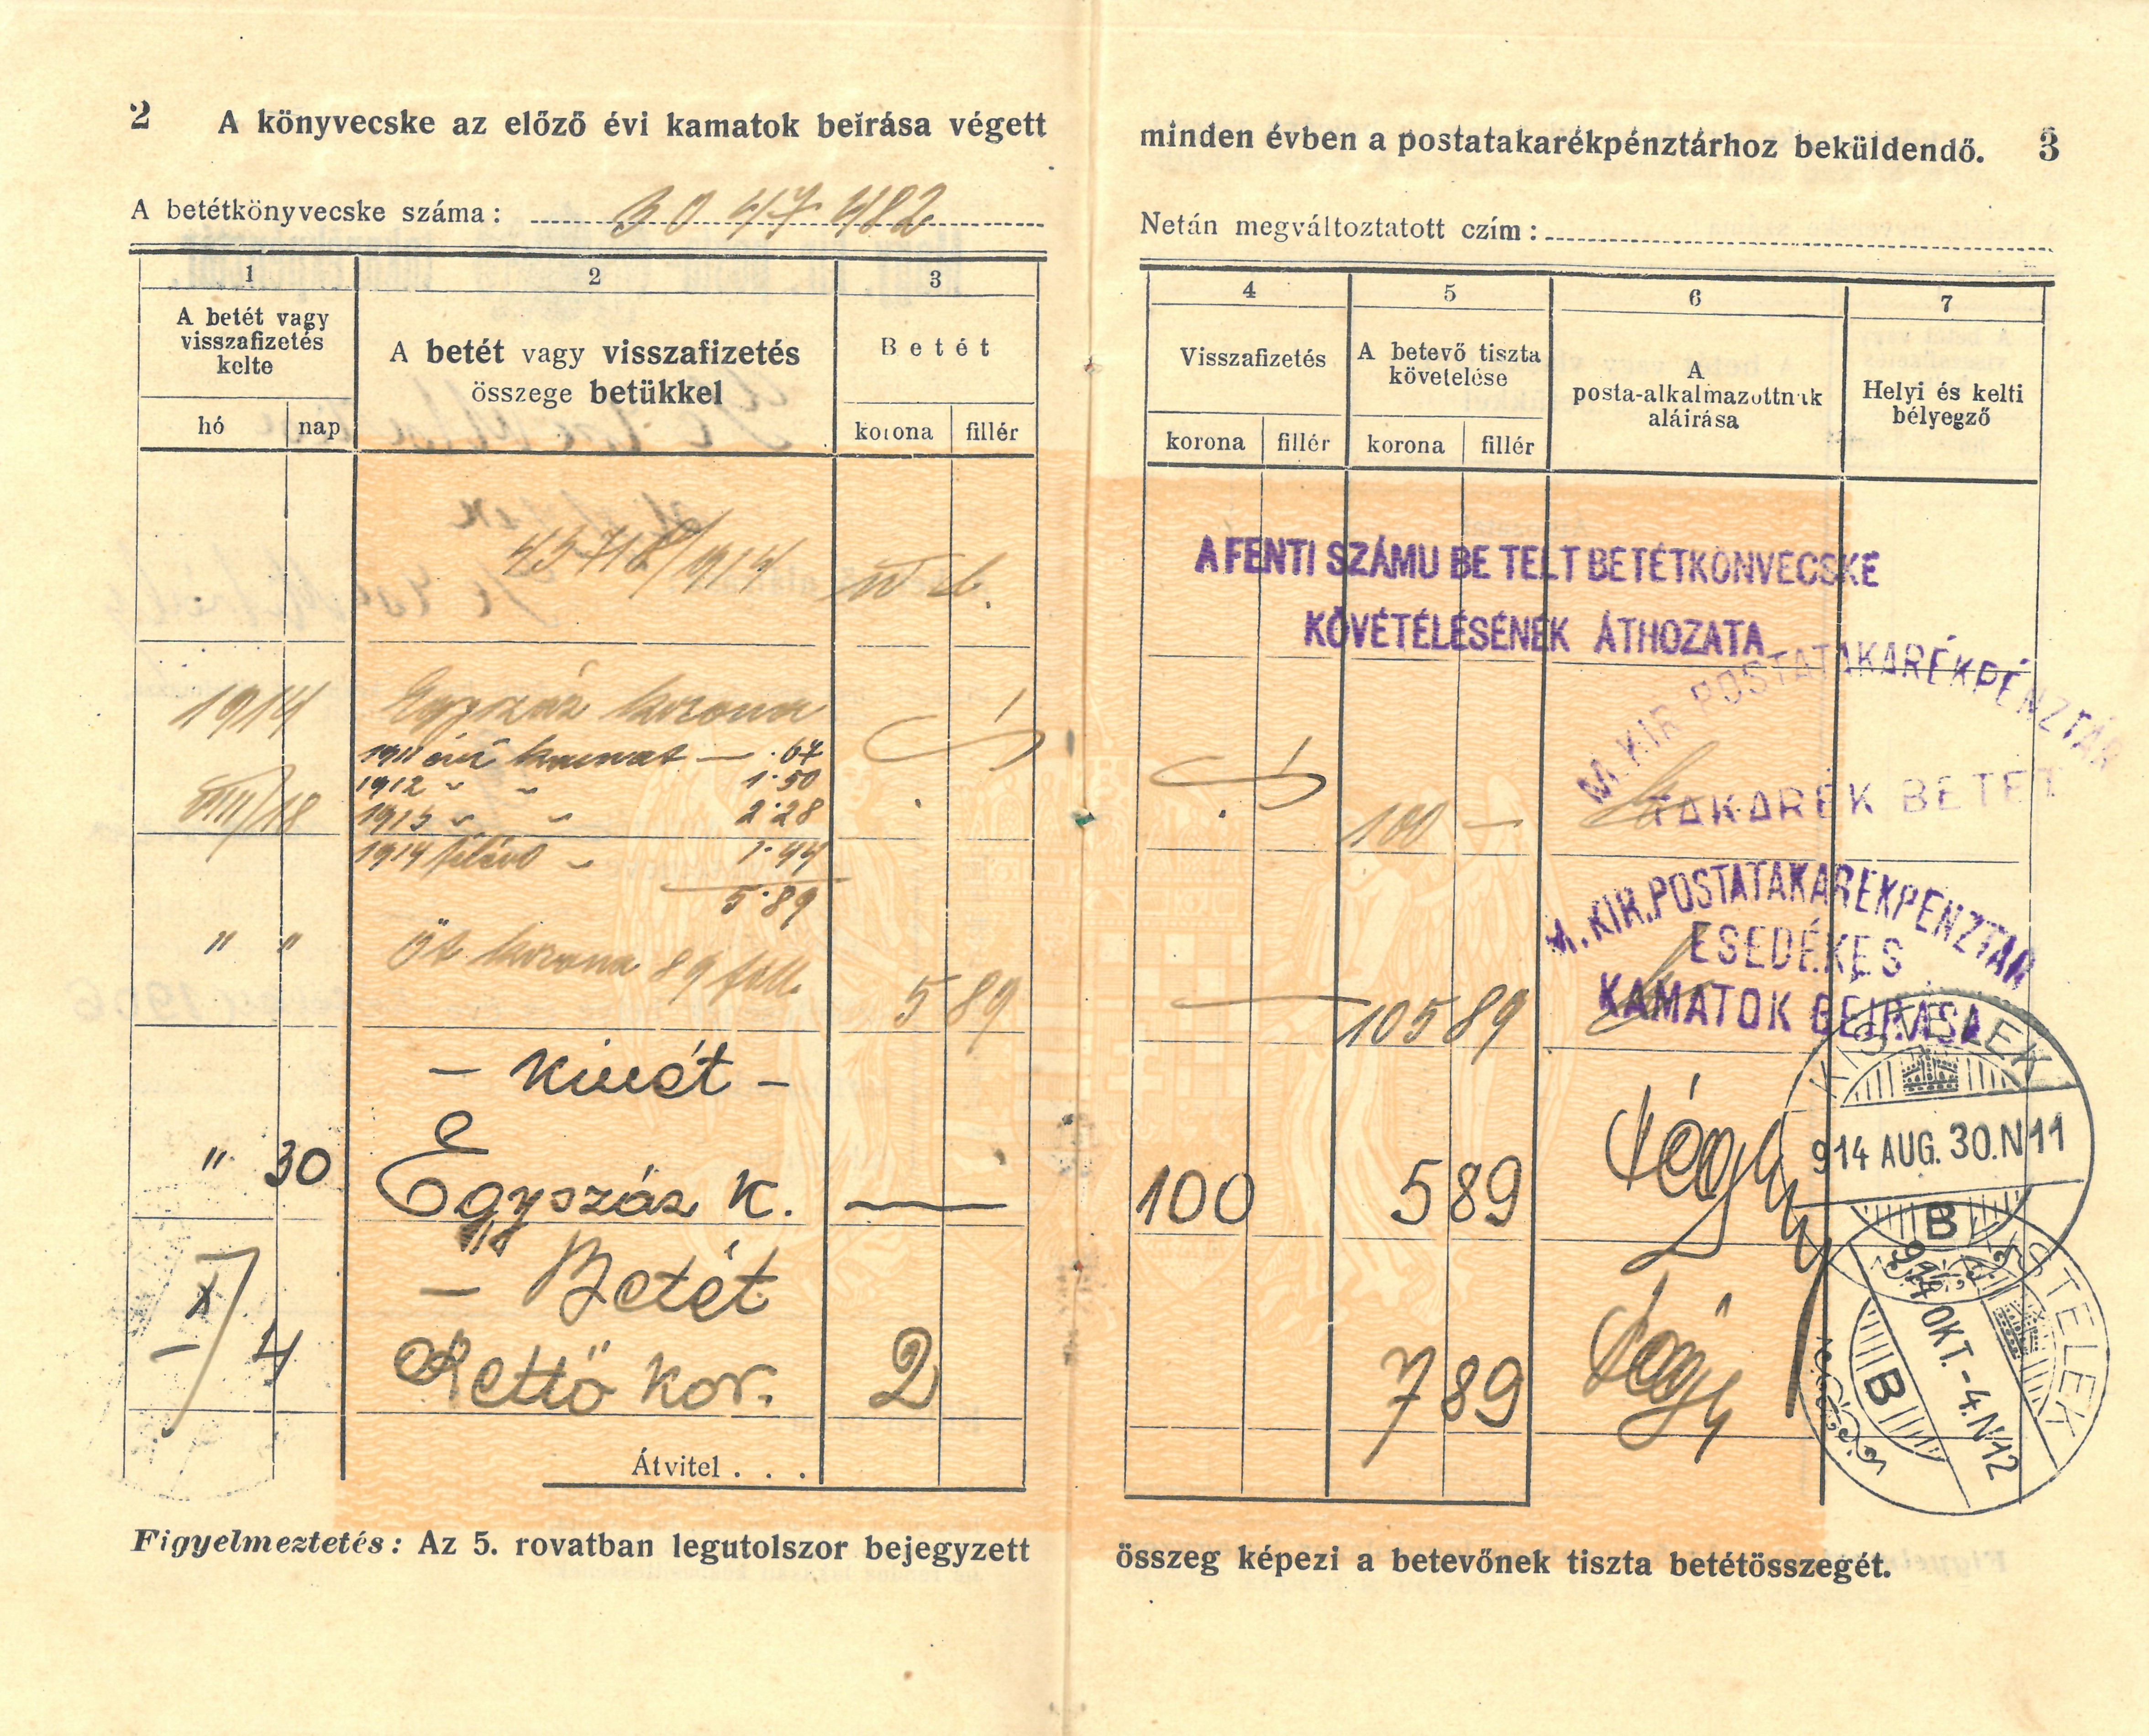 2 A könyvecske az előző évi kamatok beírása végett
A betétkönyvecske száma: 3047482
1 2 3
A betét vagy visszafizetés kelte
hó nap
A betét vagy visszafizetés összege betükkel
Betét
korona fillér
43718/1914
1914 Egyszáz korona
1911 évi kamat — .67
1912 " " 1.50
1913 " " 2.28
VIII/18
1914 félévi " 1.44
5.89
" " Öt korona 89 fill. 5 89
- Kivét -
" 30 Egyszáz K. —
- Betét
X 4 Kettő kor. 2
Átvitel . . .
Figyelmeztetés: Az 5. rovatban legutolszor bejegyzett
minden évben a postatakarékpénztárhoz beküldendő. 3
Netán megváltoztatott czím:
4 5 6 7
Visszafizetés
korona fillér
A betevő tiszta követelése
korona fillér
A posta-alkalmazottnak aláirása
Helyi és kelti bélyegző
A FENTI SZÁMU BETELT BETÉTKÖNVECSKE
KÖVÉTÉLÉSÉNEK ÁTHOZATA
M. KIR. POSTATAKARÉKPÉNZTÁR
TAKARÉK BETÉT
100 —
M. KIR. POSTATAKARÉKPÉNZTÁR
ESEDÉKES
KAMATOK BEIRÁSA
105 89
KISTELEK
914 AUG. 30. N11
B
100 5 89
KISTELEK
914 OKT. -4. N12
B
7 89
összeg képezi a betevőnek tiszta betétösszegét.